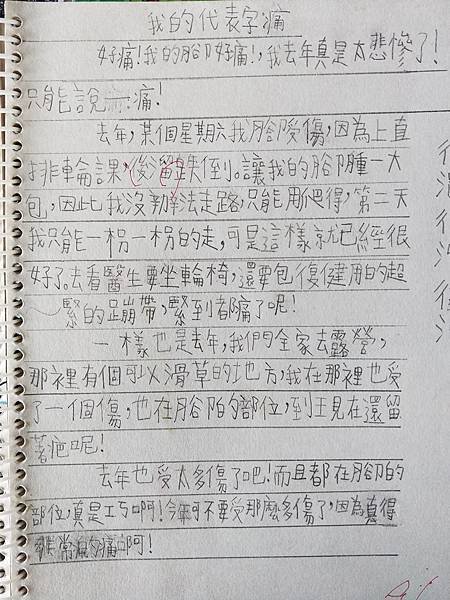 我的代表字痛
好痛!我的腳好痛!,我去年真是太悲慘了!
只能說痛!
去年,某個星期六我腳受傷,因為上直
排輪課,後溜跌倒。讓我的腳腫一大
包,因此我沒辦法走路,只能用爬得,第二天
我只能一柺一柺的走,可是這樣就已經很
好了。去看醫生要坐輪椅,還要包復健用的超
~緊的蹦帶,緊到都痛了呢!
一樣也是去年,我們全家去露營,
那裡有個可以滑草的地方,我在那裡也受
了一個傷,也在腳的部位,到王見在還留
著疤呢!
去年也受太多傷了吧!而且都在腳的
部位,真是工丂啊!今年可不要受那麼多傷了,因為真得
非常痛啊!